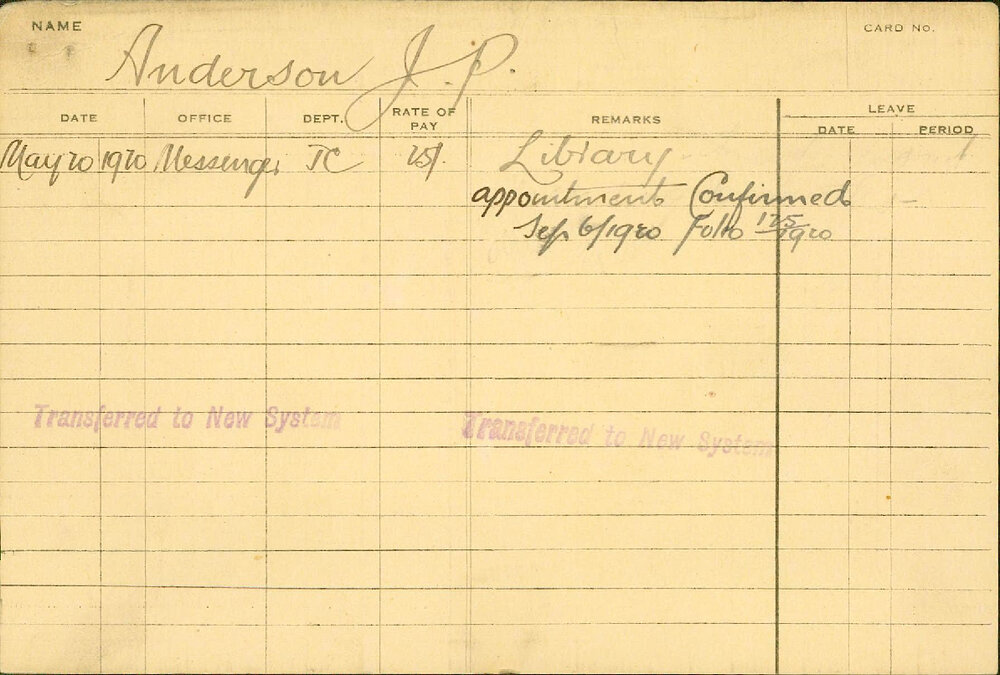 NAME
CARD No.
Anderson J. P.
DATE OFFICE DEPT. RATE OF PAY REMARKS LEAVE
DATE PERIOD
May 20 1920 Messenger TC 25/. Library
appointment Confirmed
Sep 6/1920 Folio 125/1920
Transferred to New System
Transferred to New System